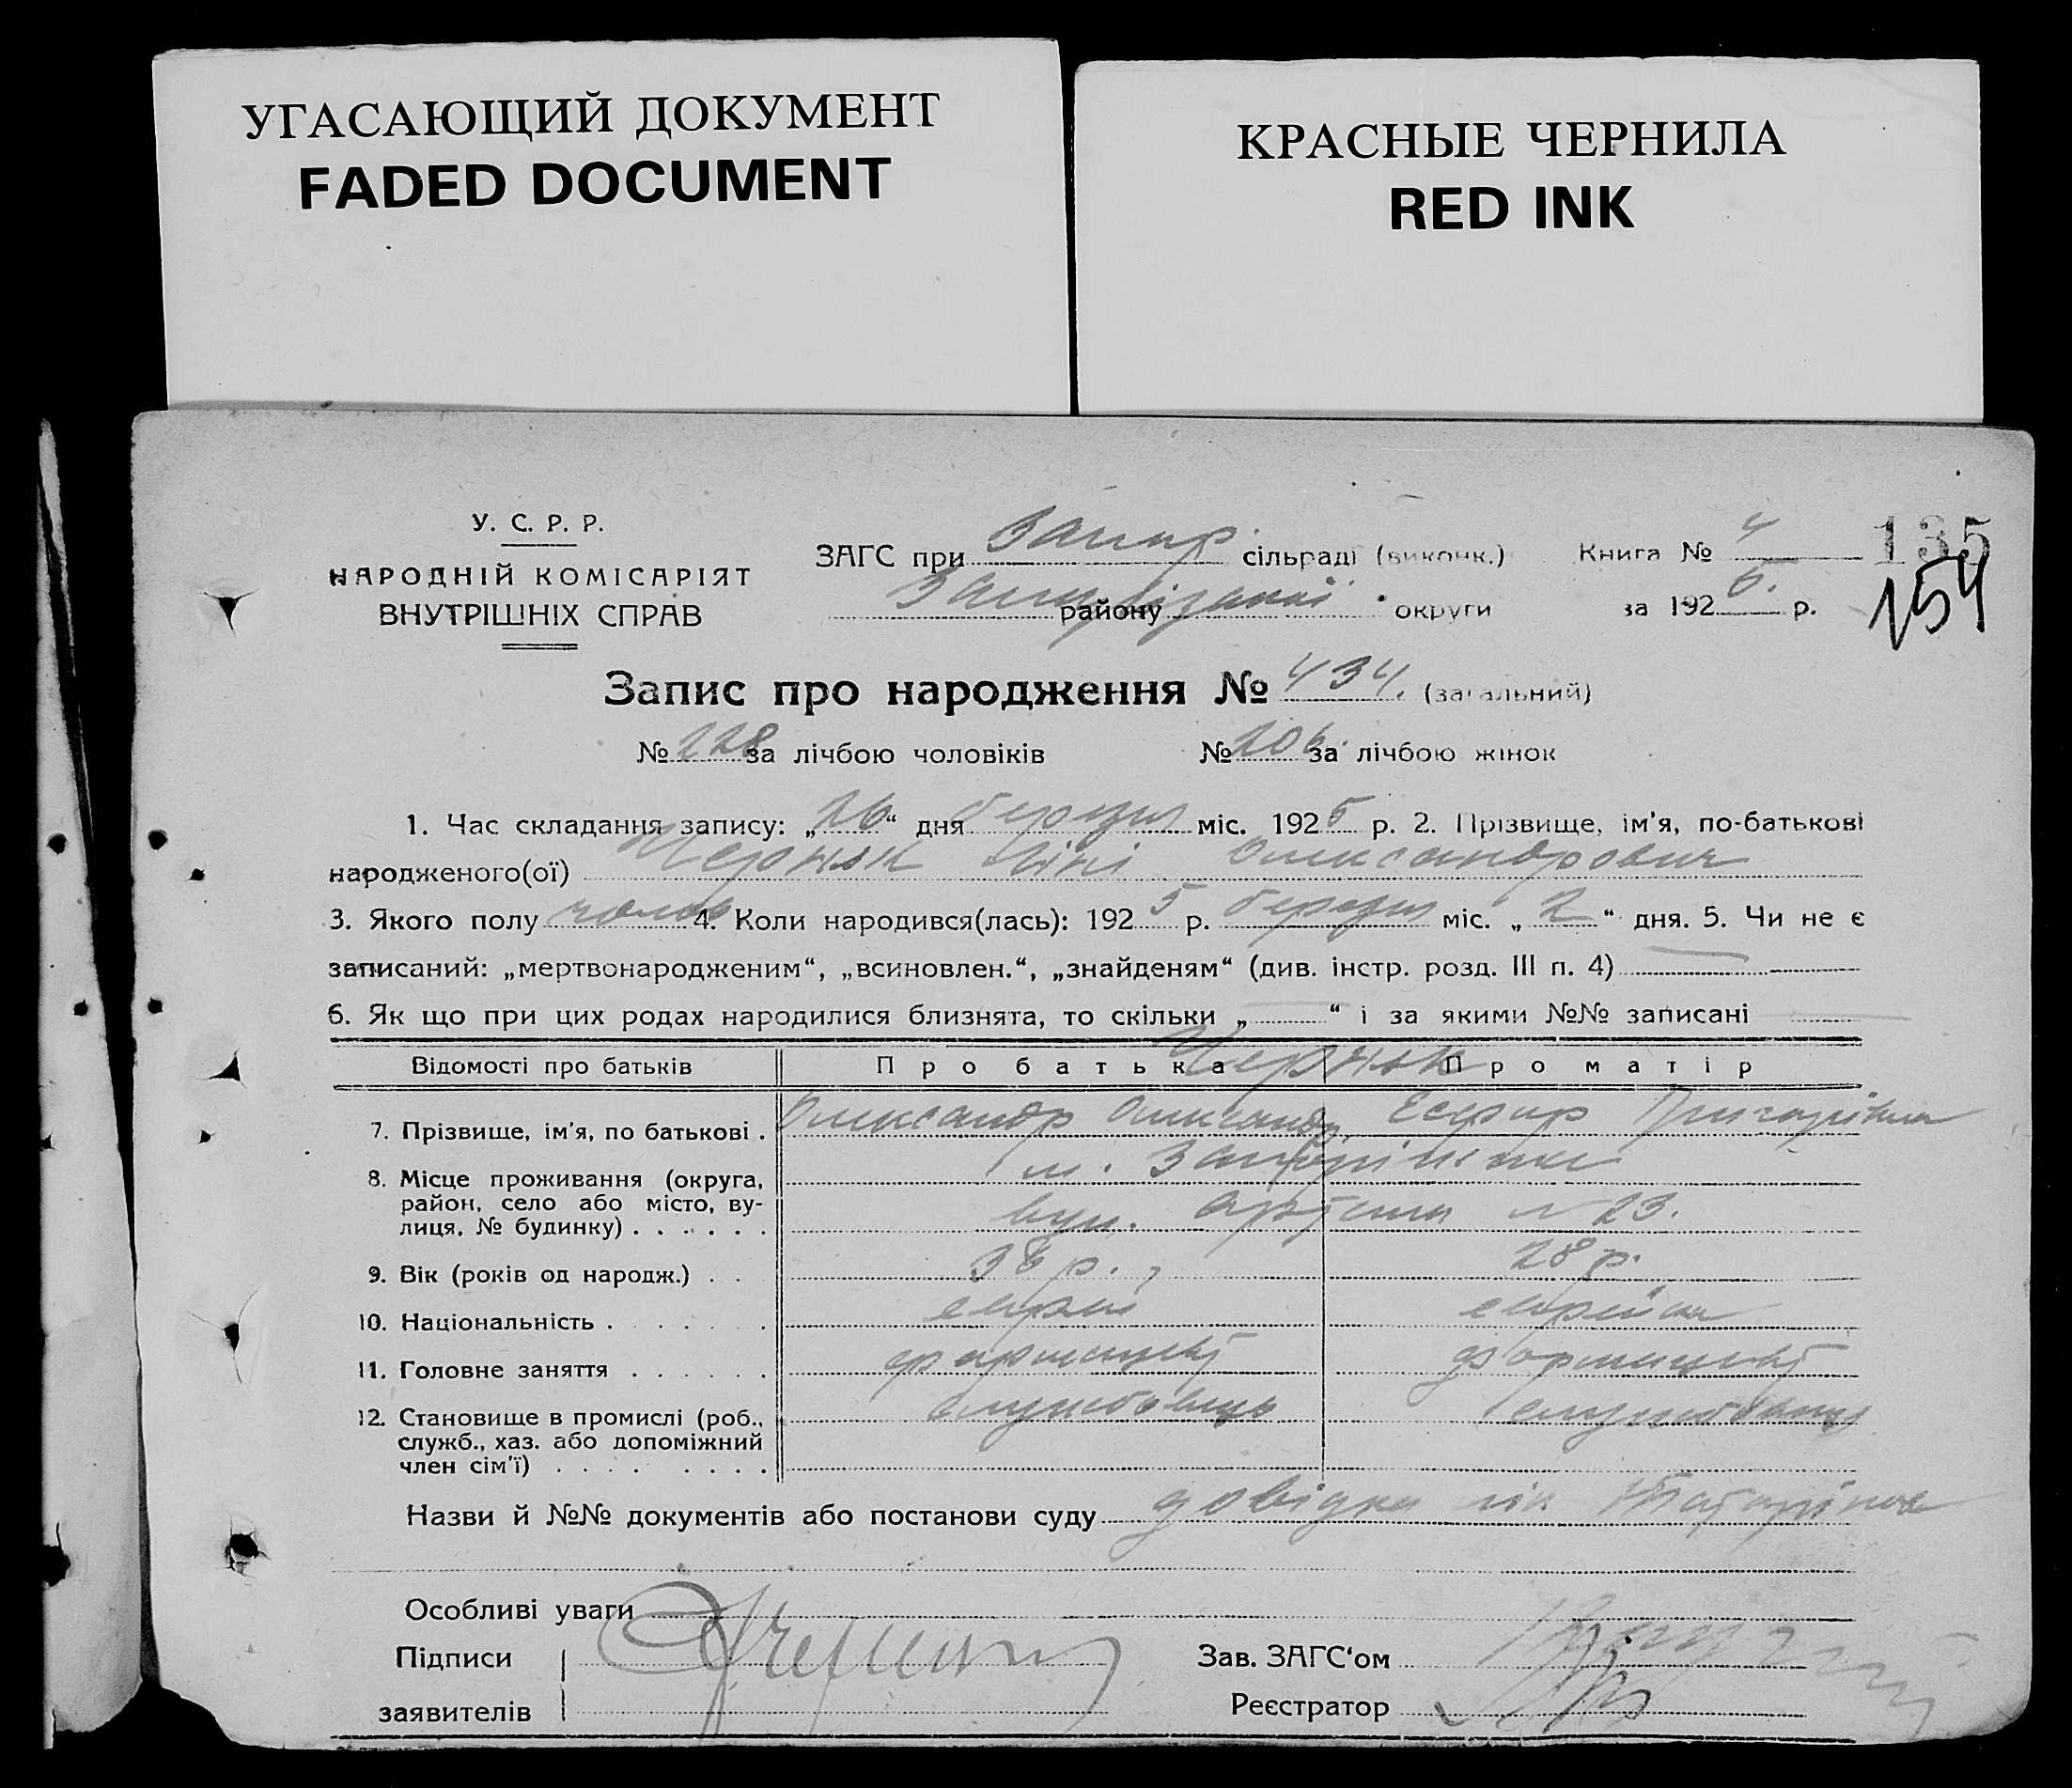 УГАСАЮЩИЙ ДОКУМЕНТ
FADED DOCUMENT
КРАСНЫЕ ЧЕРНИЛА
RED INK
У. С. Р. Р.
НАРОДНІЙ КОМІСАРІЯТ
ВНУТРІШНІХ СПРАВ
ЗАГС при Запор. сільраді (виконк.) Книга № 4
району округи за 1925. р.
135
154
Запис про народження № 434. (загальний)
№ 228 за лічбою чоловіків № 206. за лічбою жінок
1. Час складання запису: „26“ дня березня міс. 1925 р. 2. Прізвище, ім'я, по-батькові
народженого(ої) Черняк Олександрович
3. Якого полу чолов 4. Коли народився(лась): 1925 р. березня міс. „2“ дня. 5. Чи не є
записаний: „мертвонародженим“, „всиновлен.“, „знайденям“ (див. інстр. розд. III п. 4)
6. Як що при цих родах народилися близнята, то скільки „ “ і за якими №№ записані
Відомості про батьків Про батька Про матір
Черняк
7. Прізвище, ім'я, по батькові . Олександр Олександр. Есфир Григорівна
8. Місце проживання (округа, район, село або місто, вулиця, № будинку) . . . . . . м. Запоріжжя
вул. Артема № 23.
9. Вік (років од народж.) . . 36 р. 28 р.
10. Національність . . . . . . . єврей єврейка
11. Головне заняття . . . . . . фармацевт фармацевт
12. Становище в промислі (роб., служб., хаз. або допоміжний член сім'ї) . . . . . . . . службовець службовець
Назви й №№ документів або постанови суду довідка
Особливі уваги
Підписи
заявителів
Зав. ЗАГС'ом
Реєстратор